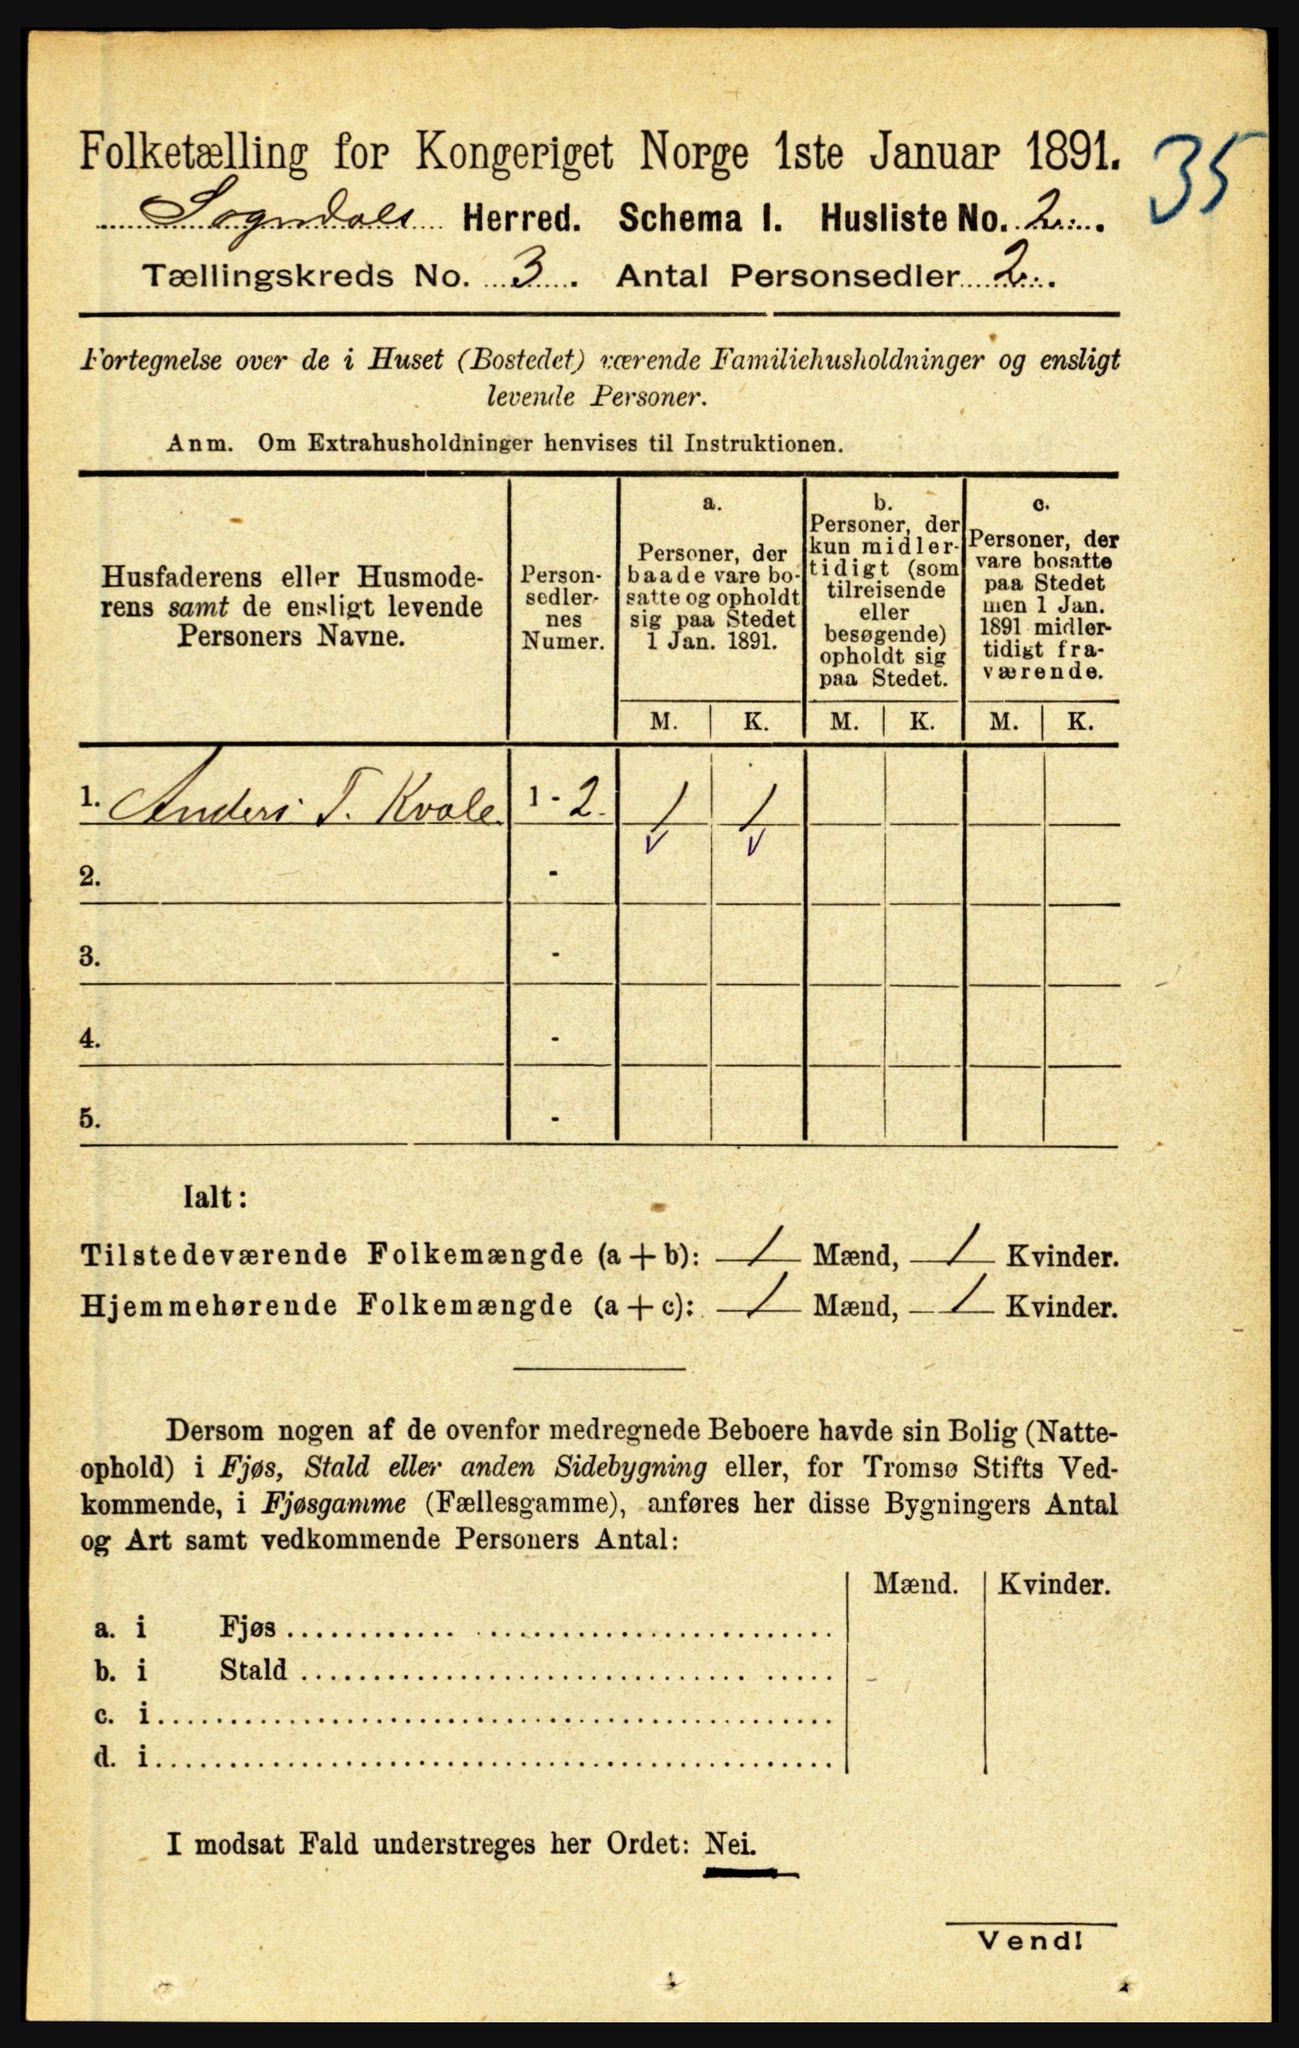 Folketælling for Kongeriget Norge 1ste Januar 1891.
35
Sogndals Herred. Schema I. Husliste No. 2.
Tællingskreds No. 3. Antal Personsedler 2.
Fortegnelse over de i Huset (Bostedet) værende Familiehusholdninger og ensligt
levende Personer.
Anm. Om Extrahusholdninger henvises til Instruktionen.
Husfaderens eller Husmode-
rens samt de ensligt levende
Personers Navne.
Person-
sedler-
nes
Numer.
a.
Personer, der
baade vare bo-
satte og opholdt
sig paa Stedet
1 Jan. 1891.
b.
Personer, der
kun midler-
tidigt (som
tilreisende
eller
besøgende)
opholdt sig
paa Stedet.
c.
Personer, der
vare bosatte
paa Stedet
men 1 Jan.
1891 midler-
tidigt fra-
værende.
M. K. M. K. M. K.
1. Anders T. Kvale 1 - 2. 1 1
2. -
3. -
4. -
5. -
Ialt:
Tilstedeværende Folkemængde (a + b): 1 Mænd, 1 Kvinder.
Hjemmehørende Folkemængde (a + c): 1 Mænd, 1 Kvinder.
Dersom nogen af de ovenfor medregnede Beboere havde sin Bolig (Natte-
ophold) i Fjøs, Stald eller anden Sidebygning eller, for Tromsø Stifts Ved-
kommende, i Fjøsgamme (Fællesgamme), anføres her disse Bygningers Antal
og Art samt vedkommende Personers Antal:
Mænd. Kvinder.
a. i Fjøs
b. i Stald
c. i
d. i
I modsat Fald understreges her Ordet: Nei.
Vend!